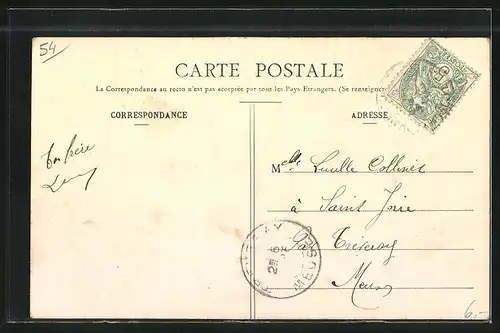 54
CARTE POSTALE
La Correspondance au recto n'est pas acceptée par tous les Pays Etrangers. (Se renseigner
CORRESPONDANCE
ADRESSE
Ton frère
Melle Lucille Collinet
à Saint Joire
Par Tréveray
Meuse
TREVERAY
MEUSE
6.-